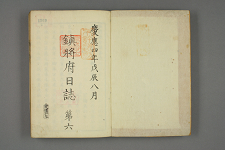 慶應四年戊辰八月
鎮將府日誌 第六